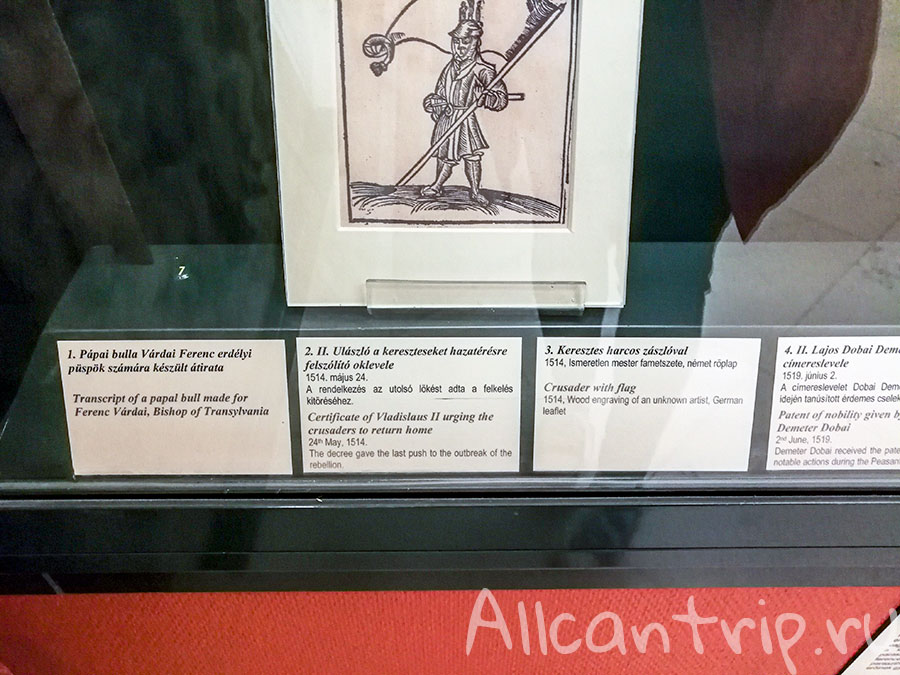 1. Pápai bulla Várdai Ferenc erdélyi
püspök számára készült átirata
Transcript of a papal bull made for
Ferenc Várdai, Bishop of Transylvania
2. II. Ulászló a kereszteseket hazatérésre
felszólító oklevele
1514. május 24.
A rendelkezés az utolsó lökést adta a felkelés
kitöréséhez.
Certificate of Vladislaus II urging the
crusaders to return home
24th May, 1514.
The decree gave the last push to the outbreak of the
rebellion.
3. Keresztes harcos zászlóval
1514, Ismeretlen mester fametszete, német röplap
Crusader with flag
1514, Wood engraving of an unknown artist, German
leaflet
4. II. Lajos Dobai
címereslevele
1519. június 2.
A címereslevelet Dobai
idején tanúsított érdemes
Patent of nobility given
Demeter Dobai
2nd June, 1519.
Demeter Dobai received the
notable actions during the
Allcantrip.ru